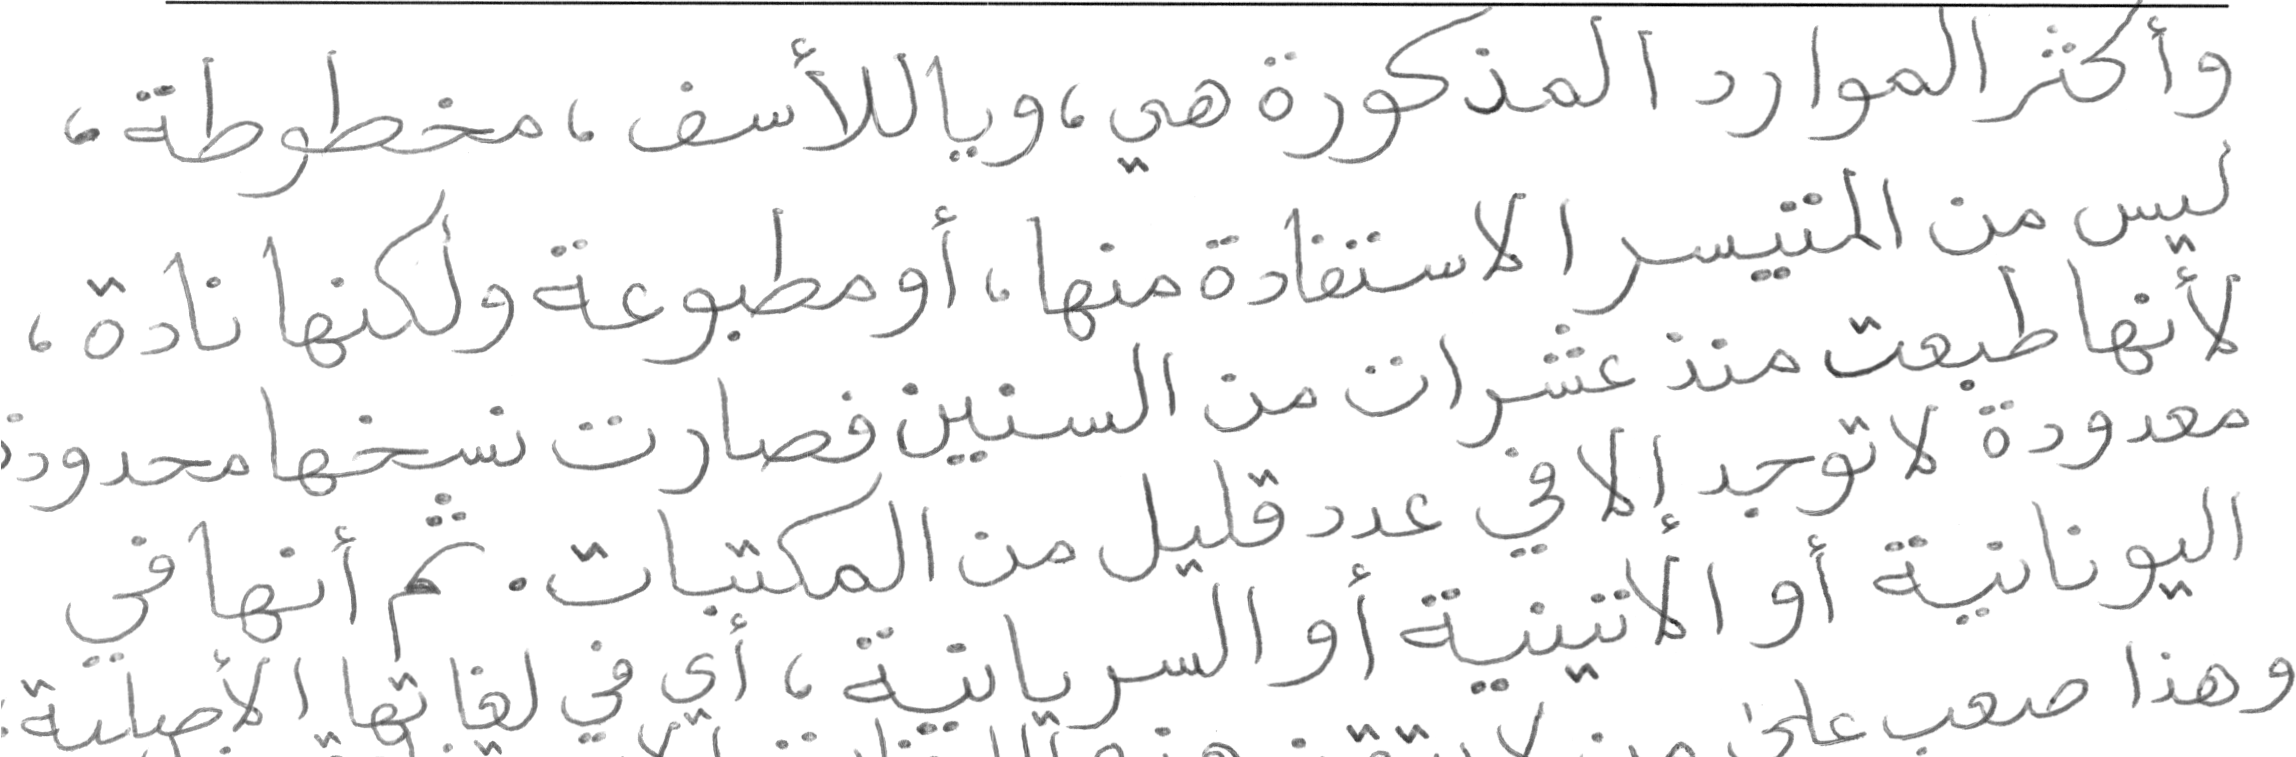 وأكثر الموارد المذكورة هي، ويا للأسف، مخطوطة،
ليس من المتيسر الاستفادة منها، أو مطبوعة ولكنها نادة،
لأنها طبعت منذ عشرات من السنين فصارت نسخها محدودة
معدودة لا توجد إلا في عدد قليل من المكتبات. ثم أنها في
اليونانية أو الاتينية أو السريانية، أي في لغاتها الأصلية:
وهذا صعب على من لا يتقن هذه